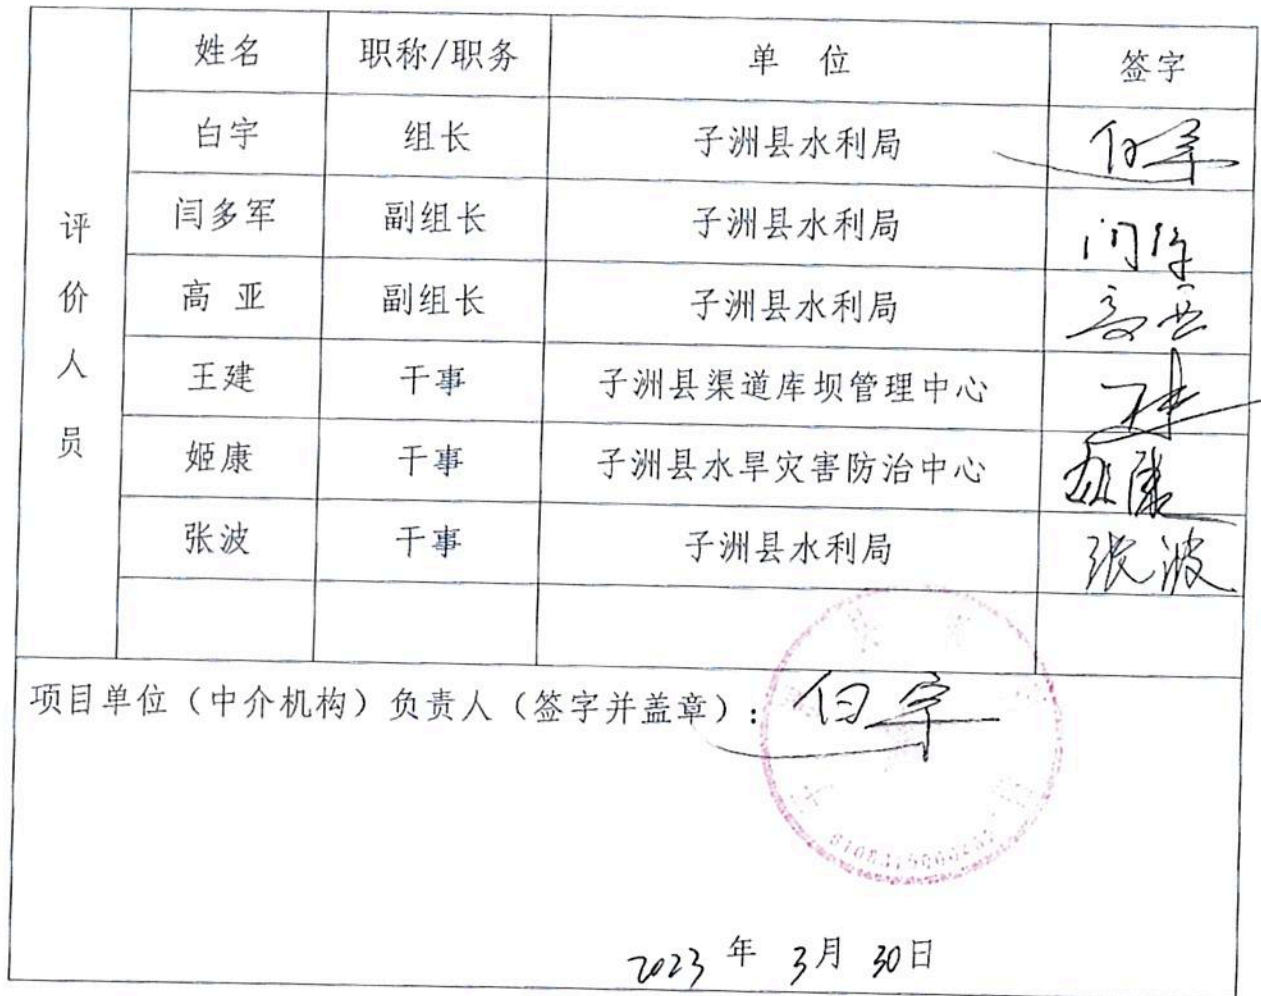 评价人员
姓名 职称/职务 单 位 签字
白宇 组长 子洲县水利局 白宇
闫多军 副组长 子洲县水利局
高 亚 副组长 子洲县水利局 高亚
王建 干事 子洲县渠道库坝管理中心 王建
姬康 干事 子洲县水旱灾害防治中心 姬康
张波 干事 子洲县水利局 张波
项目单位（中介机构）负责人（签字并盖章）：白宇
2023 年 3月 30日